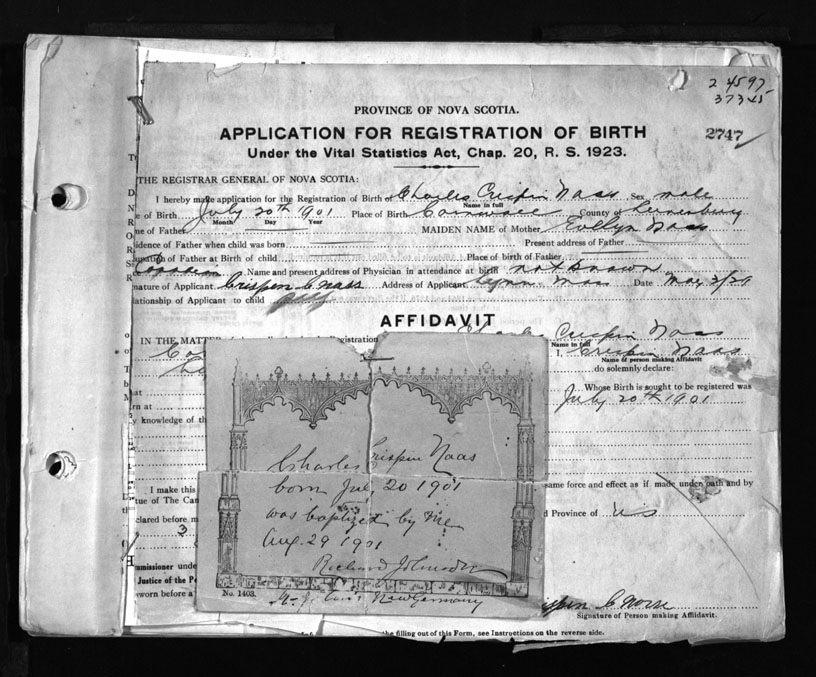 2 4597
37345
PROVINCE OF NOVA SCOTIA.
APPLICATION FOR REGISTRATION OF BIRTH
2747
Under the Vital Statistics Act, Chap. 20, R. S. 1923.
THE REGISTRAR GENERAL OF NOVA SCOTIA:
I hereby make application for the Registration of Birth of Charles Crispin Naas Sex male
Name in full
e of Birth July 20th 1901 Place of Birth Cornwall County of Lunenburg
Month Day Year
me of Father MAIDEN NAME of Mother Evelyn Naas
idence of Father when child was born Present address of Father
upation of Father at Birth of child Place of birth of Father
Name and present address of Physician in attendance at birth not known
nature of Applicant Crispen C Nass Address of Applicant Lynn Mass Date May 2/29
lationship of Applicant to child
AFFIDAVIT
IN THE MATTER gistration Charles Crispin Naas
Name in full
I, Crispin Naas
Name of person making Affidavit
do solemnly declare:
Whose Birth is sought to be registered was
at
July 20th 1901
rn at
y knowledge of th
Charles Crispen Naas
born Jul, 20 1901
was baptized by me
Aug. 29 1901
Richard Johnson
No. 1403.
New Germany
I make this
ame force and effect as if made under oath and by
tue of The Can
d Province of
clared before m
3
mmissioner unde
Justice of the Pe
worn before a
Signature of Person making Affidavit.
the filling out of this Form, see Instructions on the reverse side.